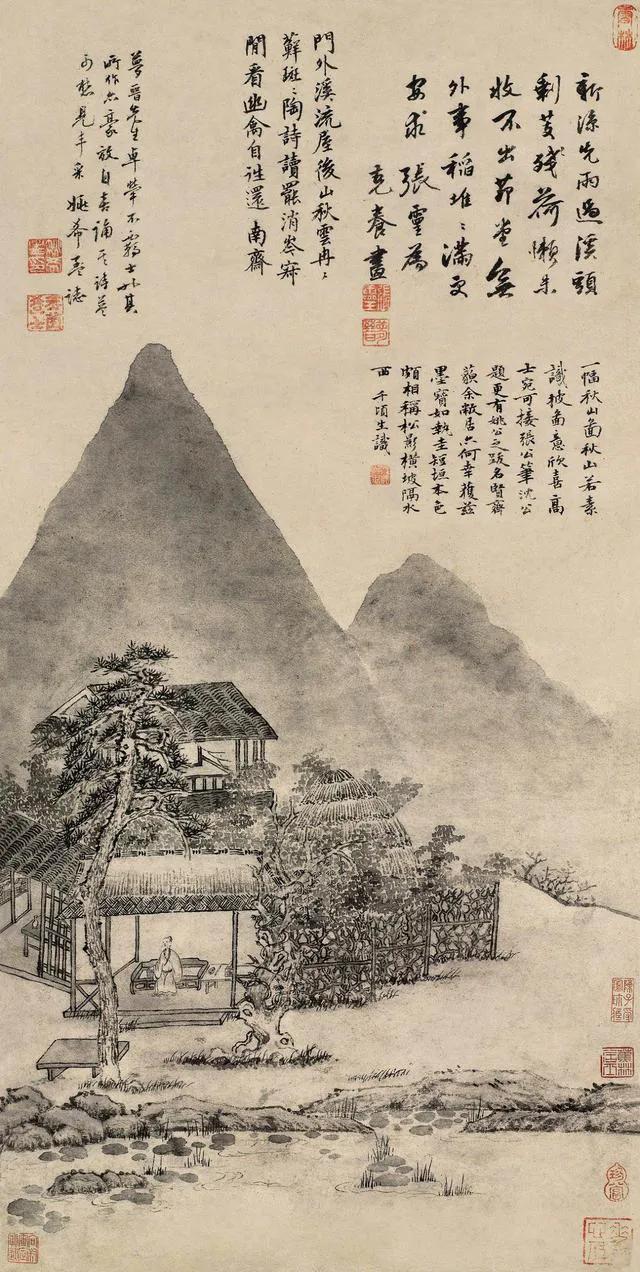 新涼先雨過溪頭
剩芰殘荷懶未
收不出茆堂無
外事稻堆〻滿更
安求 張靈為
克養畫
門外溪流屋後山秋雲冉〻
蘚斑〻陶詩讀罷消岑寂
閒看幽禽自往還 南齋
夢晉先生卓犖不羈士也其
所作亦豪放自喜誦其詩益
可想見丰采 姚希孟誌
一幅秋山圖秋山若素
識披圖意欣喜高
士宛可接張公筆沈公
題更有姚公之跋名賢齊
余敝居亦何幸獲茲
墨寶如執圭短垣本色
頗相稱松影橫坡隔水
西 千頃生識